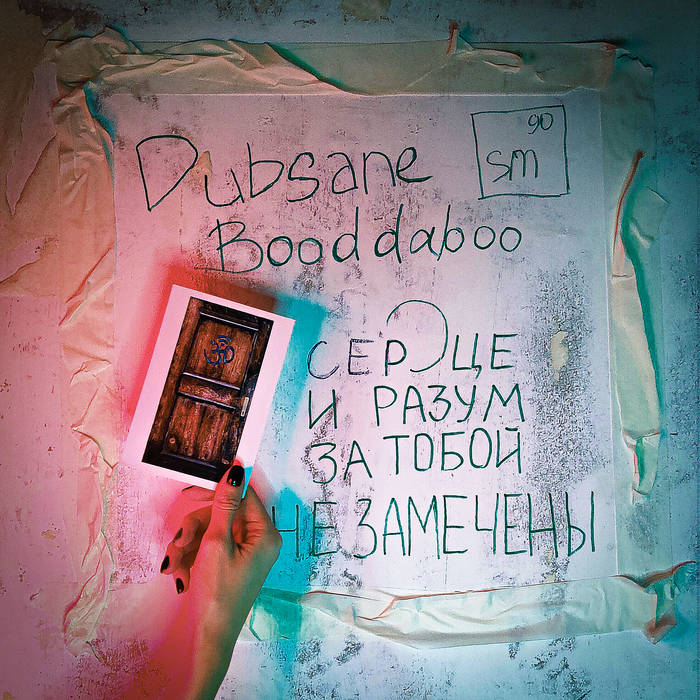 Dubsane
90
Sm
Booddaboo
СЕРДЦЕ
И РАЗУМ
ЗА ТОБОЙ
НЕ ЗАМЕЧЕНЫ
ॐ